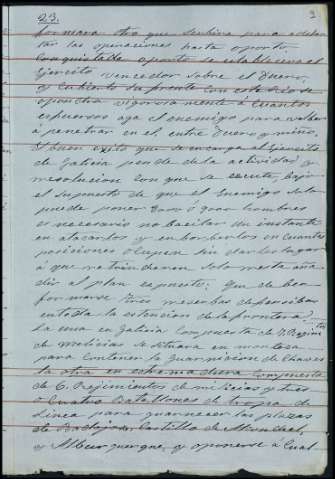 23.
formara otra que serbira para adelan
tar las operaciones hasta oporto.
Conquistada oporto se establecera el
Ejercito vencedor sobre el Duero,
y cubierto su frente con este rio se
opondra vigorosamente á cuantos
esfuersos aga el enemigo para volber
á penetrar en el, entre Duero y miño.
El buen exito que se encarga al Ejercito
de Galicia pende de la actividad y
resolucion con que se execute, bajo
el supuesto de que el Enemigo solo
puede poner hombres
es necesario no bacilar un instante
en atacarlos y en borberlos en cuantas
posiciones ocupen sin darles lugar
á que se Solo resta aña
dir al plan espuesto: Que deben
formarse tres reserbas de
en toda la estencion de la frontera:
La una en Galicia Compuesta de 7 Regimtos
de milicias se situara en monterr
para contener la Guarnicion de Chaves
la otra en estremadura Compuesta
de 6. Rejimientos de milicias y tres
o Cuatro Batallones de tropa de
Linea para guarnecer las plazas
de Badajoz, Castillo de
y Alburquerque, y oponerse á Cual